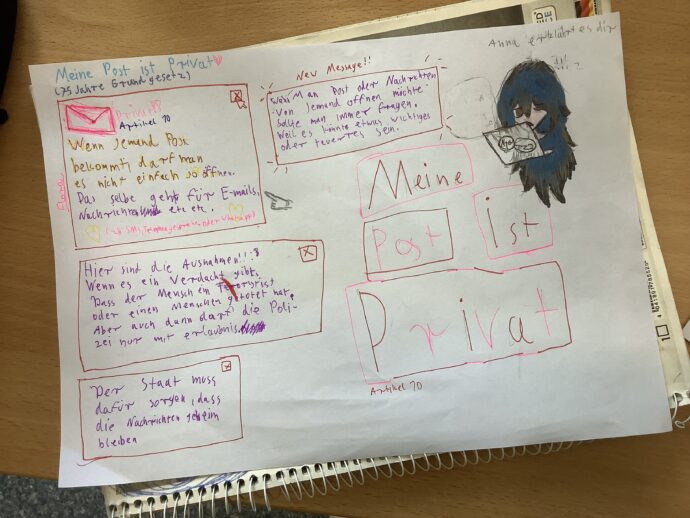 Meine Post ist Privat
(75 Jahre Grundgesetz)
Privat!!
Artikel 10
Wenn Jemand Post
bekommt, darf man
es nicht einfach so öffnen.
Das selbe geht für E-mails,
Nachrichten etc etc.
New Message!!
Wenn Man Post oder Nachrichten
von Jemand öffnen möchte
sollte man immer fragen.
Weil es könnte etwas wichtiges
oder teueres sein.
Anna erklährt es dir
!!!
Meine
Post
ist
Privat
Artikel 10
Hier sind die Ausnahmen!!:
Wenn es ein Verdacht gibt,
Dass der Mensch ein Terrorist
oder einen Menschen getötet hat,
Aber auch dann darf die Poli-
zei nur mit erlaubnis
Der Staat muss
dafür sorgen, dass
die Nachrichten geheim
bleiben